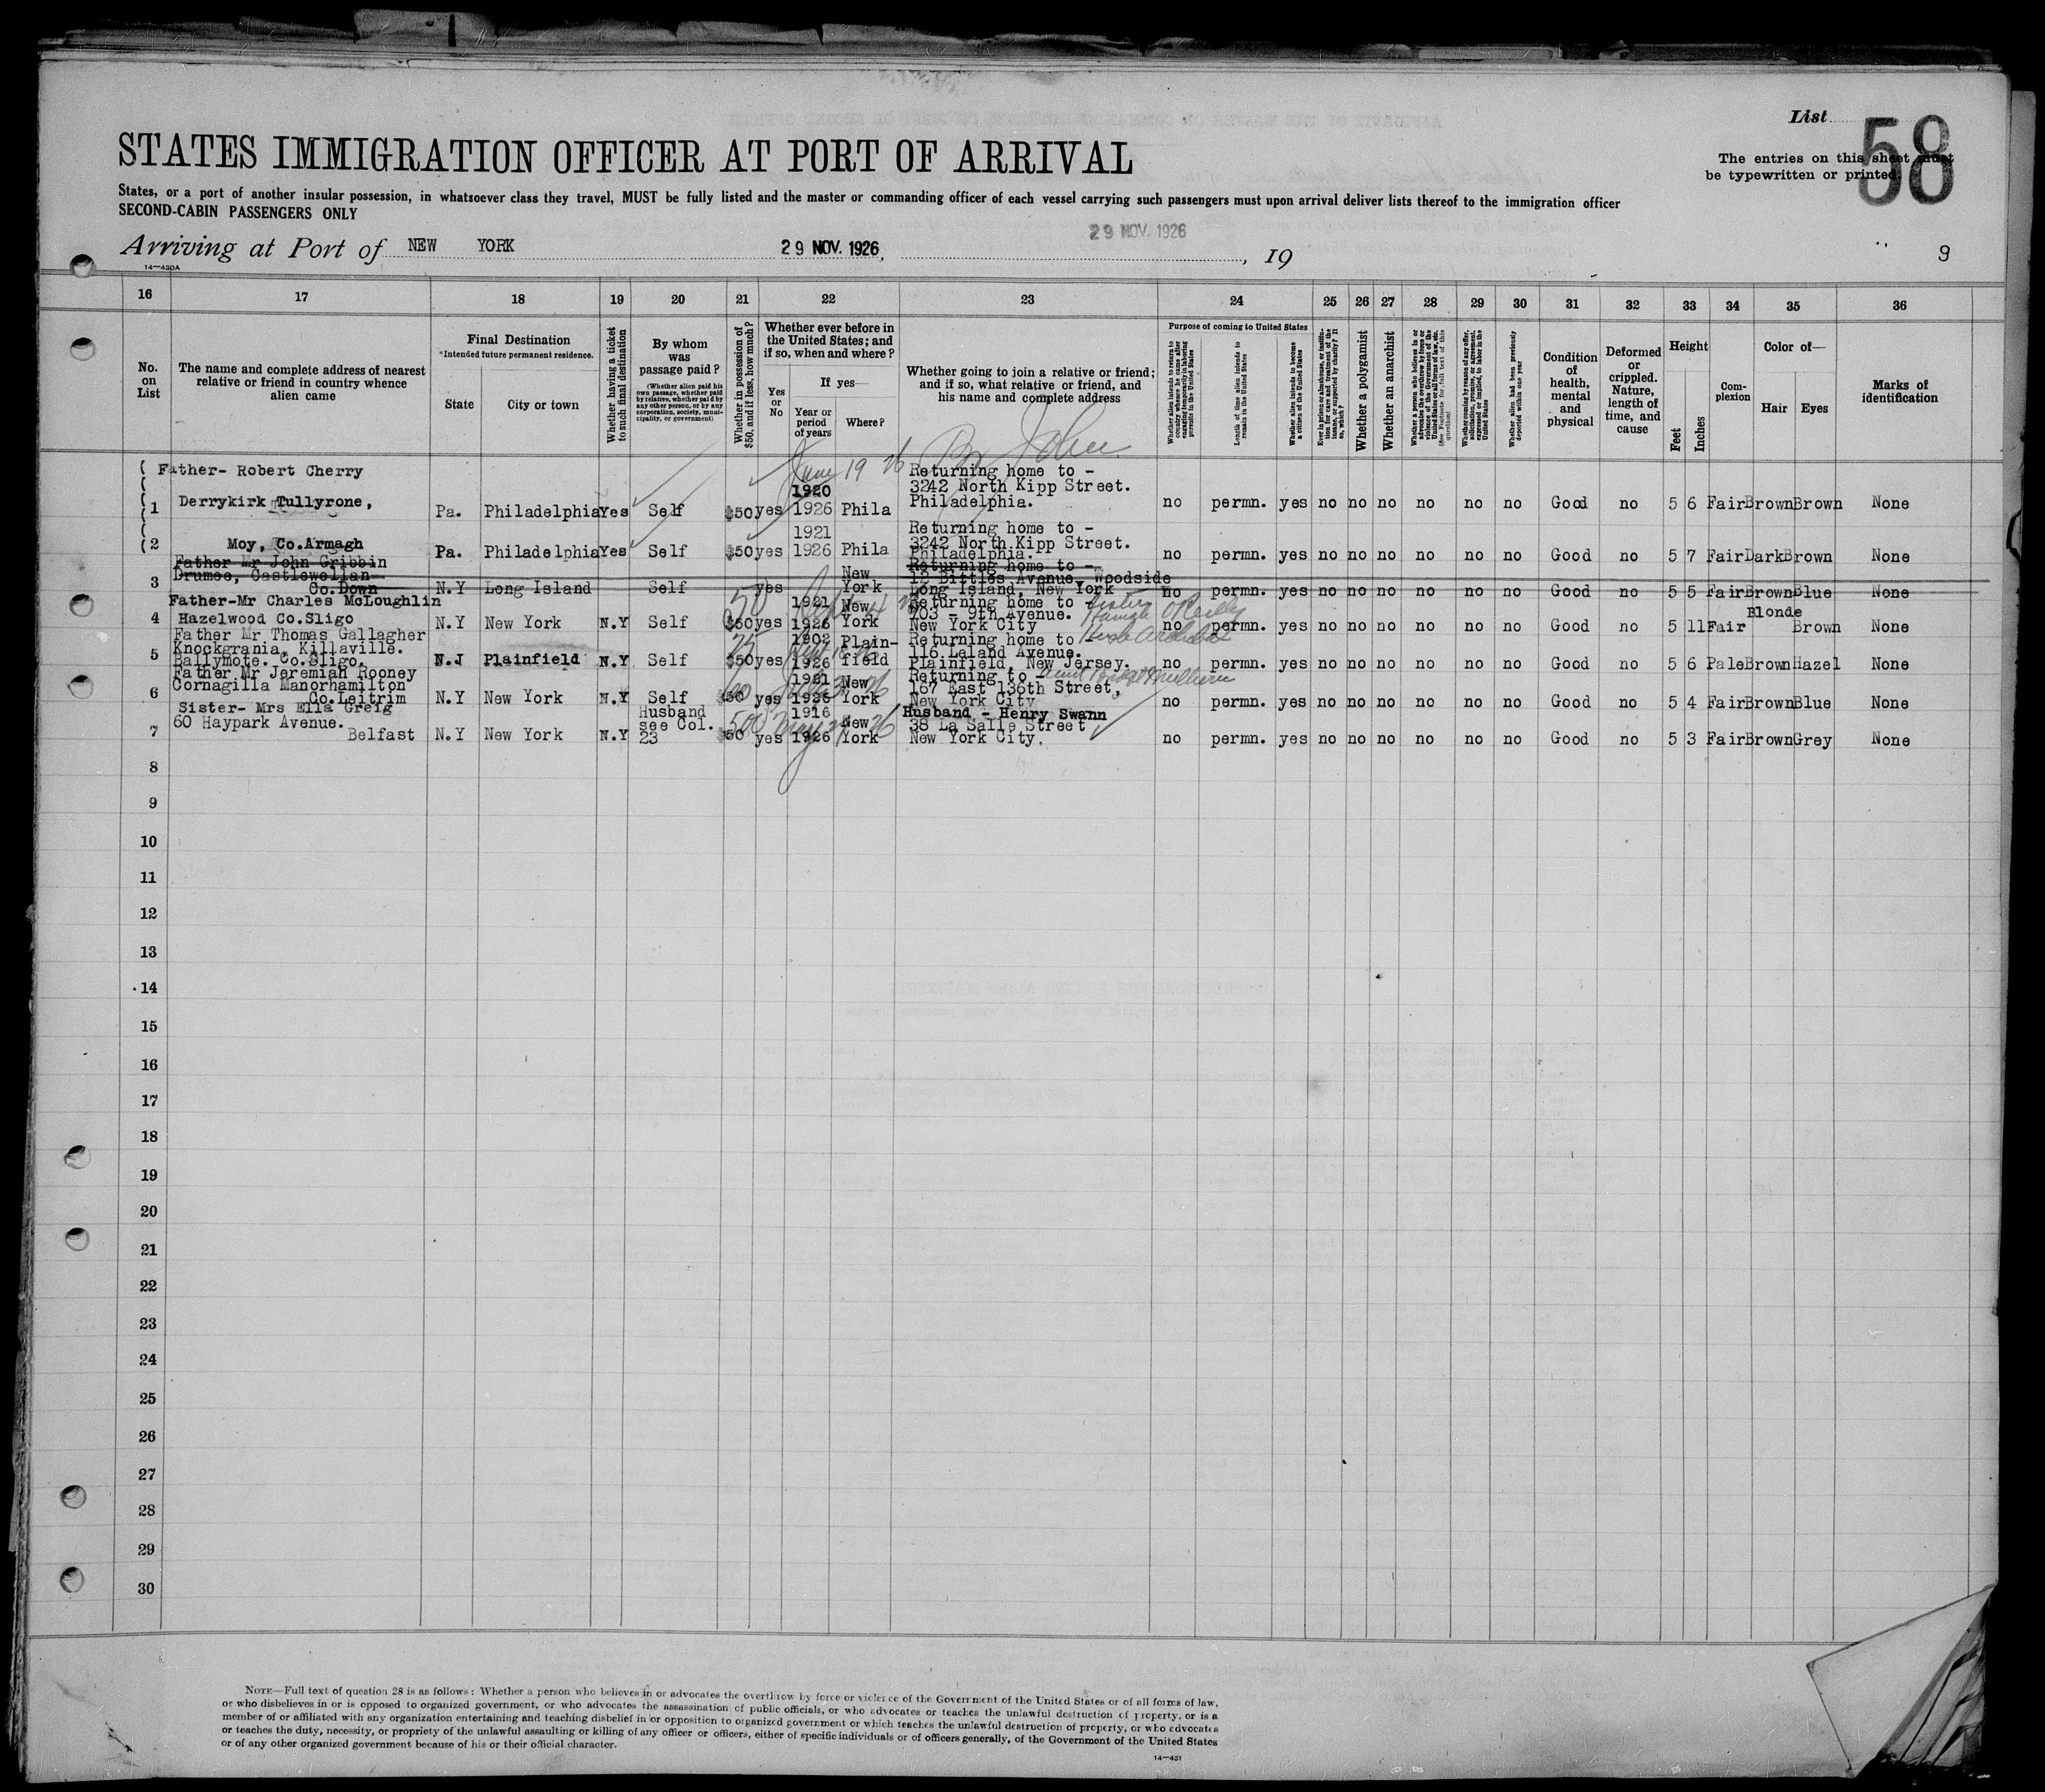 List 58
STATES IMMIGRATION OFFICER AT PORT OF ARRIVAL
The entries on this sheet must
be typewritten or printed.
States, or a port of another insular possession, in whatsoever class they travel, MUST be fully listed and the master or commanding officer of each vessel carrying such passengers must upon arrival deliver lists thereof to the immigration officer
SECOND-CABIN PASSENGERS ONLY
Arriving at Port of NEW YORK 29 NOV. 1926, 29 NOV. 1926, 19 9
14—430A
16 17 18 19 20 21 22 23 24 25 26 27 28 29 30 31 32 33 34 35 36
No. on List
The name and complete address of nearest relative or friend in country whence alien came
Final Destination
*Intended future permanent residence.
State
City or town
Whether having a ticket to such final destination
By whom was passage paid?
(Whether alien paid his own passage, whether paid by relative, whether paid by any other person, or by any corporation, society, municipality, or government)
Whether in possession of $50, and if less, how much?
Whether ever before in the United States; and if so, when and where?
Yes or No
If yes—
Year or period of years
Where?
Whether going to join a relative or friend; and if so, what relative or friend, and his name and complete address
Purpose of coming to United States
Whether alien intends to return to country whence he came after engaging temporarily in laboring pursuits in the United States
Length of time alien intends to remain in the United States
Whether alien intends to become a citizen of the United States
Ever in prison or almshouse, or institution for care and treatment of the insane, or supported by charity? If so, which?
Whether a polygamist
Whether an anarchist
Whether a person who believes in or advocates the overthrow by force or violence of the Government of the United States or all forms of law, etc. (See Footnote for full text of this question)
Whether coming by reason of any offer, solicitation, promise, or agreement, expressed or implied, to labor in the United States
Whether alien had been previously deported within one year
Condition of health, mental and physical
Deformed or crippled. Nature, length of time, and cause
Height
Feet
Inches
Complexion
Color of—
Hair
Eyes
Marks of identification
June 19 26 Br John
Father- Robert Cherry Returning home to -
1920 3242 North Kipp Street.
1 Derrykirk Tullyrone, Pa. Philadelphia Yes Self $50 yes 1926 Phila Philadelphia. no permn. yes no no no no no no Good no 5 6 Fair Brown Brown None
1921 Returning home to -
2 Moy, Co.Armagh Pa. Philadelphia Yes Self $50 yes 1926 Phila 3242 North Kipp Street. no permn. yes no no no no no no Good no 5 7 Fair Dark Brown None
Philadelphia.
Father Mr John Gribbin Returning home to -
Drumee, Castlewellan New 12 Bittles Avenue, Woodside
3 Co.Down N.Y Long Island Self yes York Long Island, New York no permn. yes no no no no no no Good no 5 5 Fair Brown Blue None
Father-Mr Charles McLoughlin 50 1921 New Returning home to - Sister
703 - 9th Avenue. Blonde
4 Hazelwood Co.Sligo N.Y New York N.Y Self $50 yes 1926 York New York City no permn. yes no no no no no no Good no 5 11 Fair Brown None
Father Mr Thomas Gallagher 75 1902 Plain- Returning home to -
Knockgrania, Killaville. 116 Leland Avenue.
5 Ballymote. Co.Sligo. N.J Plainfield N.Y Self $50 yes 1926 field Plainfield, New Jersey. no permn. yes no no no no no no Good no 5 6 Pale Brown Hazel None
Father Mr Jeremiah Rooney 1921 New Returning to -
Cornagilla Manorhamilton 167 East 136th Street,
6 Co.Leitrim N.Y New York N.Y Self $50 yes 1926 York New York City no permn. yes no no no no no no Good no 5 4 Fair Brown Blue None
Sister- Mrs Ella Greig Husband 1916 Husband - Henry Swann
60 Haypark Avenue. see Col. 500 May 26 New 38 La Salle Street
7 Belfast N.Y New York N.Y 23 $50 yes 1926 York New York City. no permn. yes no no no no no no Good no 5 3 Fair Brown Grey None
8
9
10
11
12
13
14
15
16
17
18
19
20
21
22
23
24
25
26
27
28
29
30
NOTE—Full text of question 28 is as follows: Whether a person who believes in or advocates the overthrow by force or violence of the Government of the United States or of all forms of law,
or who disbelieves in or is opposed to organized government, or who advocates the assassination of public officials, or who advocates or teaches the unlawful destruction of property, or is a
member of or affiliated with any organization entertaining and teaching disbelief in or opposition to organized government or which teaches the unlawful destruction of property, or who advocates
or teaches the duty, necessity, or propriety of the unlawful assaulting or killing of any officer or officers, either of specific individuals or of officers generally, of the Government of the United States
or of any other organized government because of his or their official character.
14—431